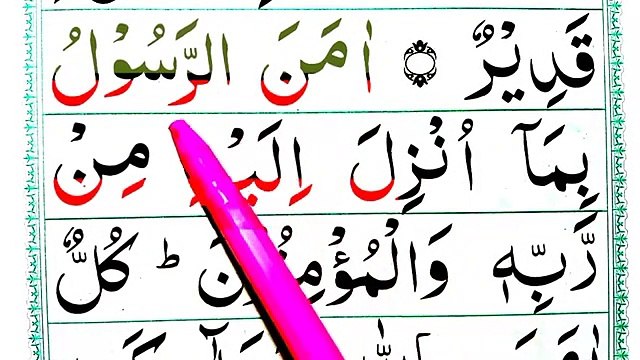 قَدِيْرٌ ۝ اٰمَنَ الرَّسُوْلُ
بِمَاۤ اُنْزِلَ اِلَيْهِ مِنْ
رَّبِّهٖ وَالْمُؤْمِنُوْنَ ؕ كُلٌّ